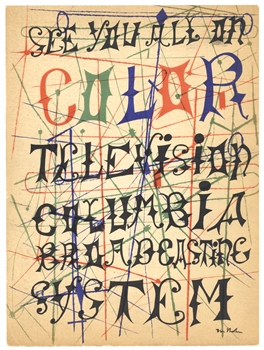 SEE YOU ALL ON
COLOR
TELEVISION
COLUMBIA
BROADCASTING
SYSTEM